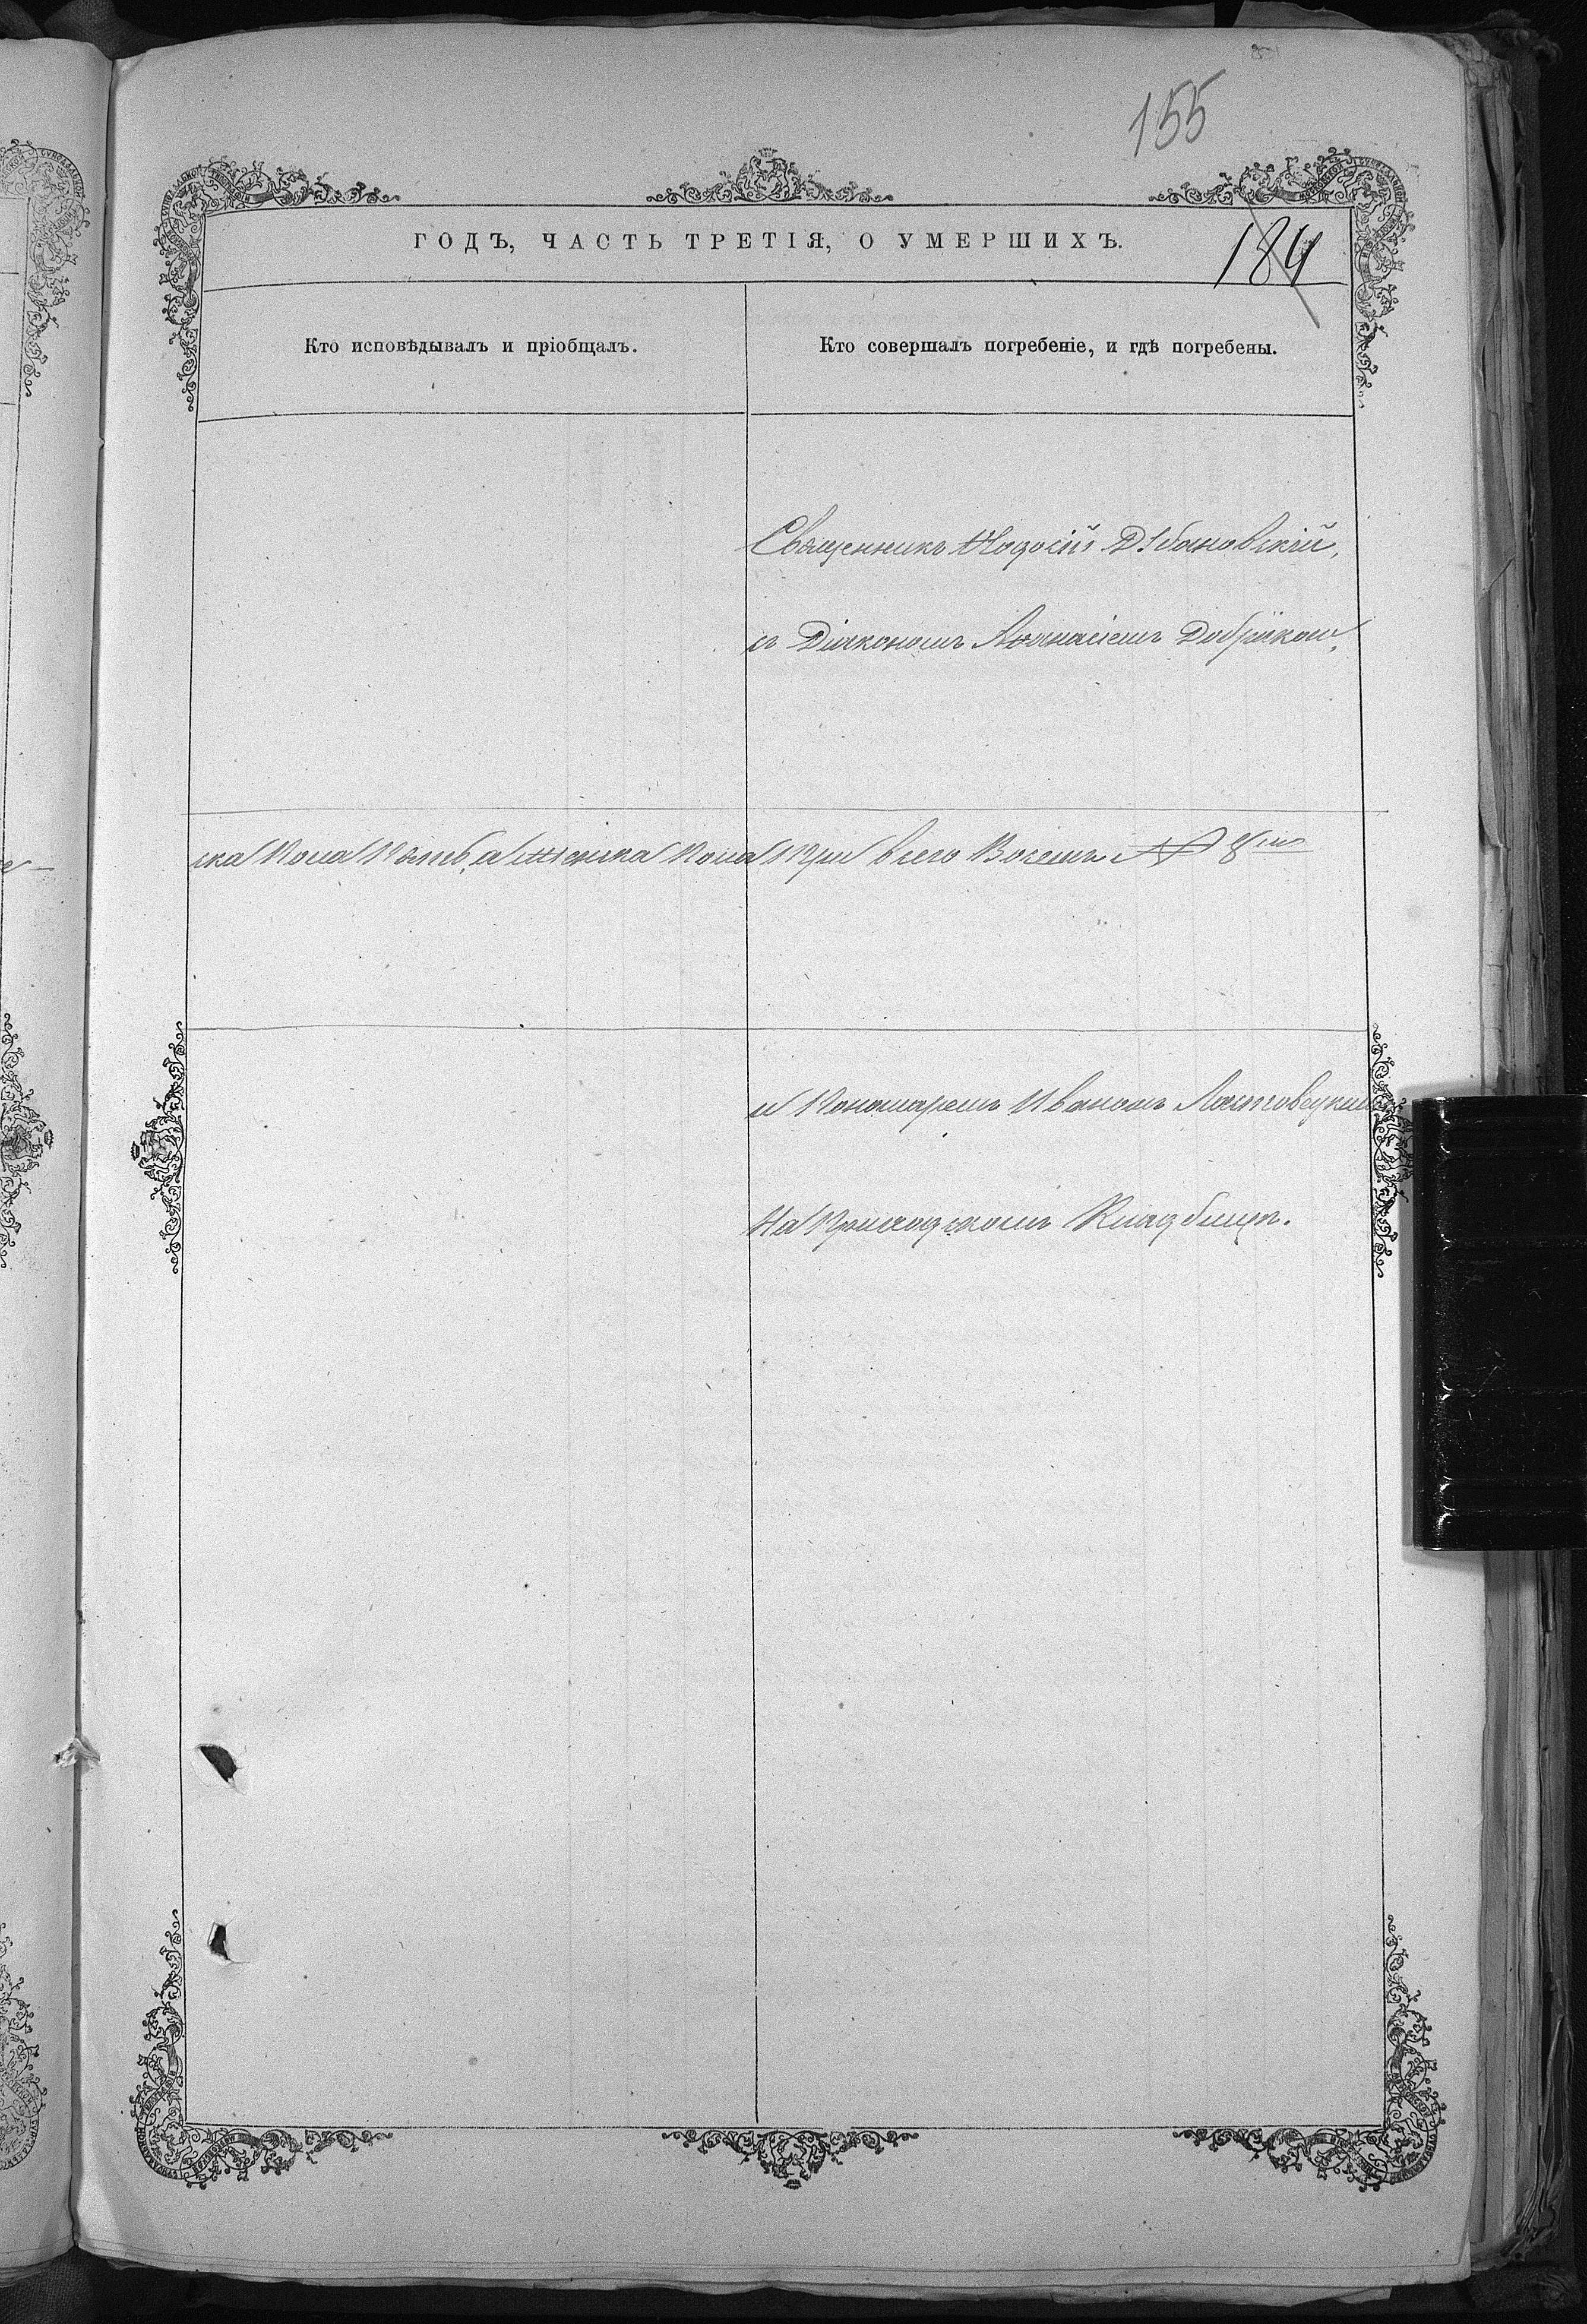 155
ГОДЪ, ЧАСТЬ ТРЕТІЯ, О УМЕРШИХЪ.
184
Кто исповѣдывалъ и пріобщалъ.
Кто совершалъ погребеніе, и гдѣ погребены.
Священникъ
съ Діакономъ Аѳанасіемъ
ска Пола Пять, а женска Пола Три всего Восемь 8
и Пономаремъ Иваномъ
На Приходскомъ Кладбищѣ.